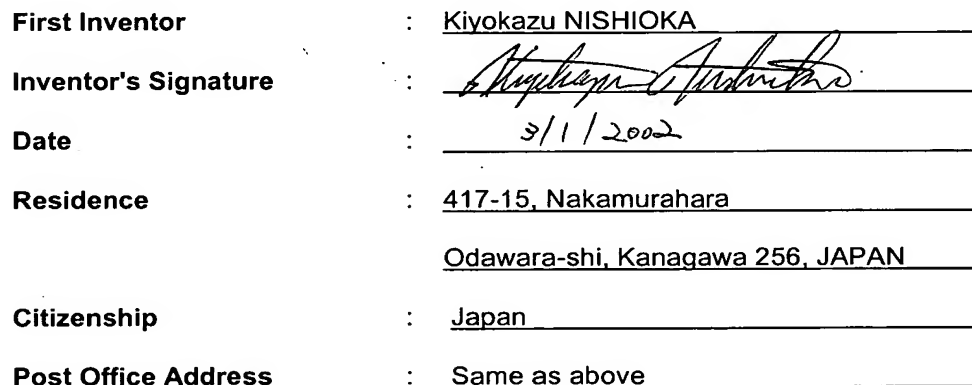 First Inventor : Kiyokazu NISHIOKA
Inventor's Signature :
Date : 3/1/2002
Residence : 417-15, Nakamurahara
Odawara-shi, Kanagawa 256, JAPAN
Citizenship : Japan
Post Office Address : Same as above